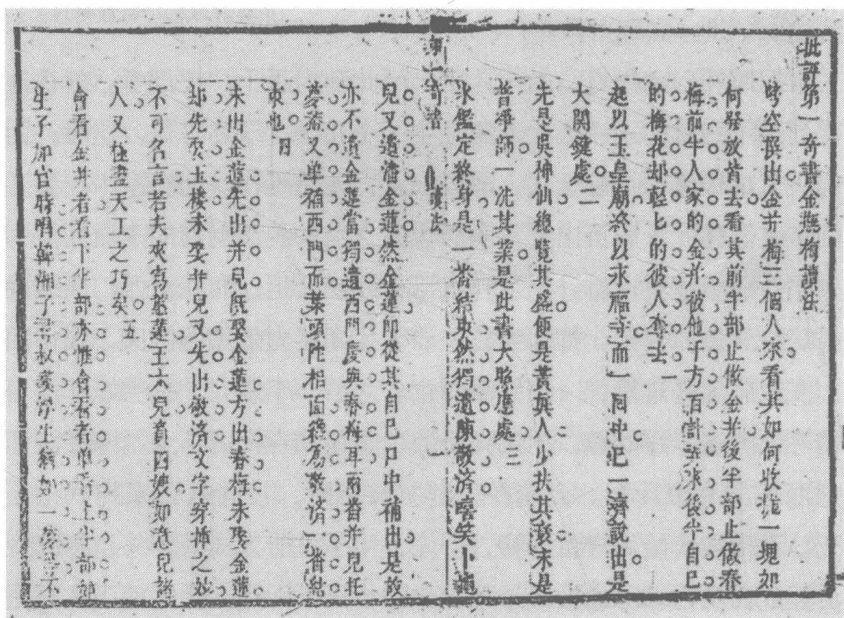 批評第一奇書金瓶梅讀法
劈空撰出金并梅三個人來看其如何收攏一塊如
何發放開去看其前半部止做金并後半部止做春
梅前半人家的金并被他千方百計弄來後半自己
的梅花却輕匕的被人奪去
起以玉皇廟終以永福寺而一囘中已一齊說出是
大關鍵處二
先是吳神仙總覽其盛便是黃真人少扶其衰末是
普淨師一洗其業是此書大照應處三
氷鑑定終身是一番結束然獨遺陳敬濟戲笑卜龜
第一奇書 讀法 一
兒又遺潘金蓮然金蓮即從其自己口中補出是故
亦不遺金蓮當獨遺西門慶與春梅耳兩番并兒托
夢葢又單補西門而葉頭陀相面纔為敬濟一番結
束也四
未出金蓮先出并兒既娶金蓮方出春梅未娶金蓮
却先娶玉樓未娶并兒又先出敬濟文字穿插之妙
不可名言若夫夾寫蕙蓮王六兒賁四嫂如意兒諸
人又極盡天工之巧矣五
會看金并者看下半部亦惟會看者單看上半部如
生子加官時唱韓湘子尋叔嘆浮生猶如一夢等不